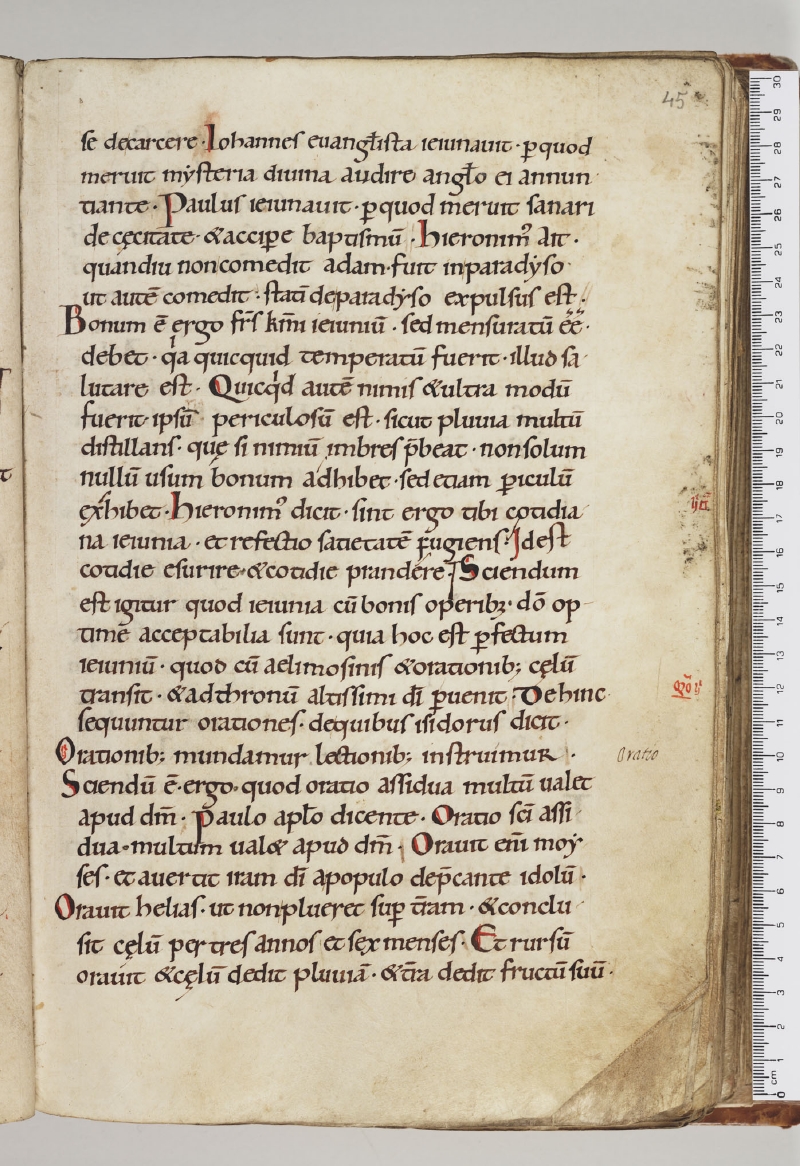 45
se decarcere · Iohannes euangł̅ista ieiunauit · ꝑquod
meruit mẏsteria diuina audire angło ei annun
tiante · Paulus ieiunauit · ꝑquod meruit sanari
de cęcitate · &acciꝑe baptismū · hieronim᷒ Ait ·
quandiu noncomedit adam · fuit inparadẏso
ut autē comedit · statī deparadẏso expulsus est ·
Bonum ē ergo fr̄s km̄i ieiuniū · sed mensuratū ēē ·
debet · qͥa quicquid temperatū fuerit · illud sa
lutare est · Quicqͥd autē nimis &ultra modū
fuerit · ipsū periculosū est · sicut pluuia multū
distillans · quę si nimiū imbres p̄beat · nonsolum
nullū usum bonum adhibet · sed etiam ꝑiculū
ęxhibet · hieronim᷒ dicit · sint ergo tibi cotidia
na ieiunia · et refectio satietatē fugiens · Idest
cotidie esurire · &cotidie prandere · Sciendum
est igitur quod ieiunia cū bonis operib; · dō op
time acceptabilia sunt · quia hoc est ꝑfectum
ieiuniū · quod cū aelimosinis &orationib; cęlū
transit · &adthronū altissimi dī ꝑuenit · Dehinc
sequuntur orationes · dequibus isidorus dicit ·
Orationib; mundamur lectionib; instruimur ·
Oratio
Sciendū ē · ergo · quod oratio assidua multū ualet
apud dm̄ · Paulo apło dicente · Oratio scī assi
dua · multum ual& apud dm̄ · Orauit enī moẏ
ses · et auertit iram dī apopulo dep̄cante idolū ·
Orauit helias · ut nonplueret suꝑ t̄ram · &conclu
sit cęlū per tres annos et sęx menses · Et rursū
orauit &cęlū dedit pluuiā · &t̄ra dedit fructū suū ·